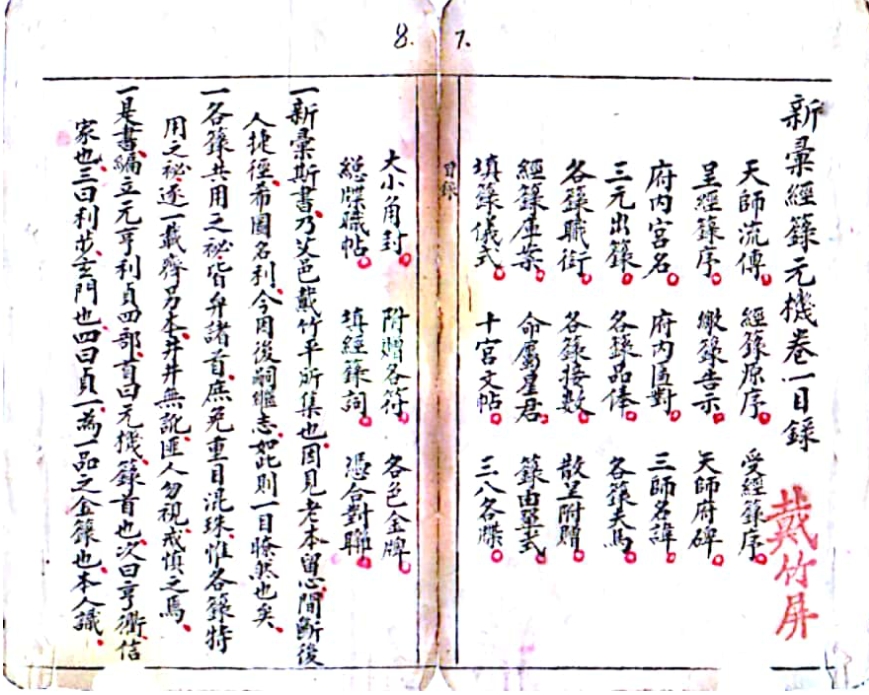 7.
新彙經籙元機卷一目錄
戴竹屏
天師流傳。經籙原序。受經籙序。
呈經籙序。繳籙告示。天師府碑。
府內宮名。府內匾對。三師名諱。
三元出籙。各籙品俸。各籙夫馬。
各籙職銜。各籙接數。散呈附贈。
經籙庫案。命屬星君。籙由單式。
填籙儀式。十宮文帖。三八各牒。
目錄
8.
大小角封。附贈各符。各色金牌。
總牒職帖。填經籙詞。憑合對聯。
一新彙斯書、乃艾邑戴竹平所集也、因見老本留心間斷後
人捷徑、希圖名利、今因後嗣繼志、如此則一目瞭然也矣、
一各籙共用之祕、皆弁諸首、庶免重目混珠、惟各籙特
用之祕、逐一載齊另本、井井無訛、匪人勿視、戒慎之焉、
一是書、編立元亨利貞四部、首曰元機、籙首也、次曰亨衢、信
家也、三曰利步、玄門也、四曰貞一、為一品之金籙也、本人識、